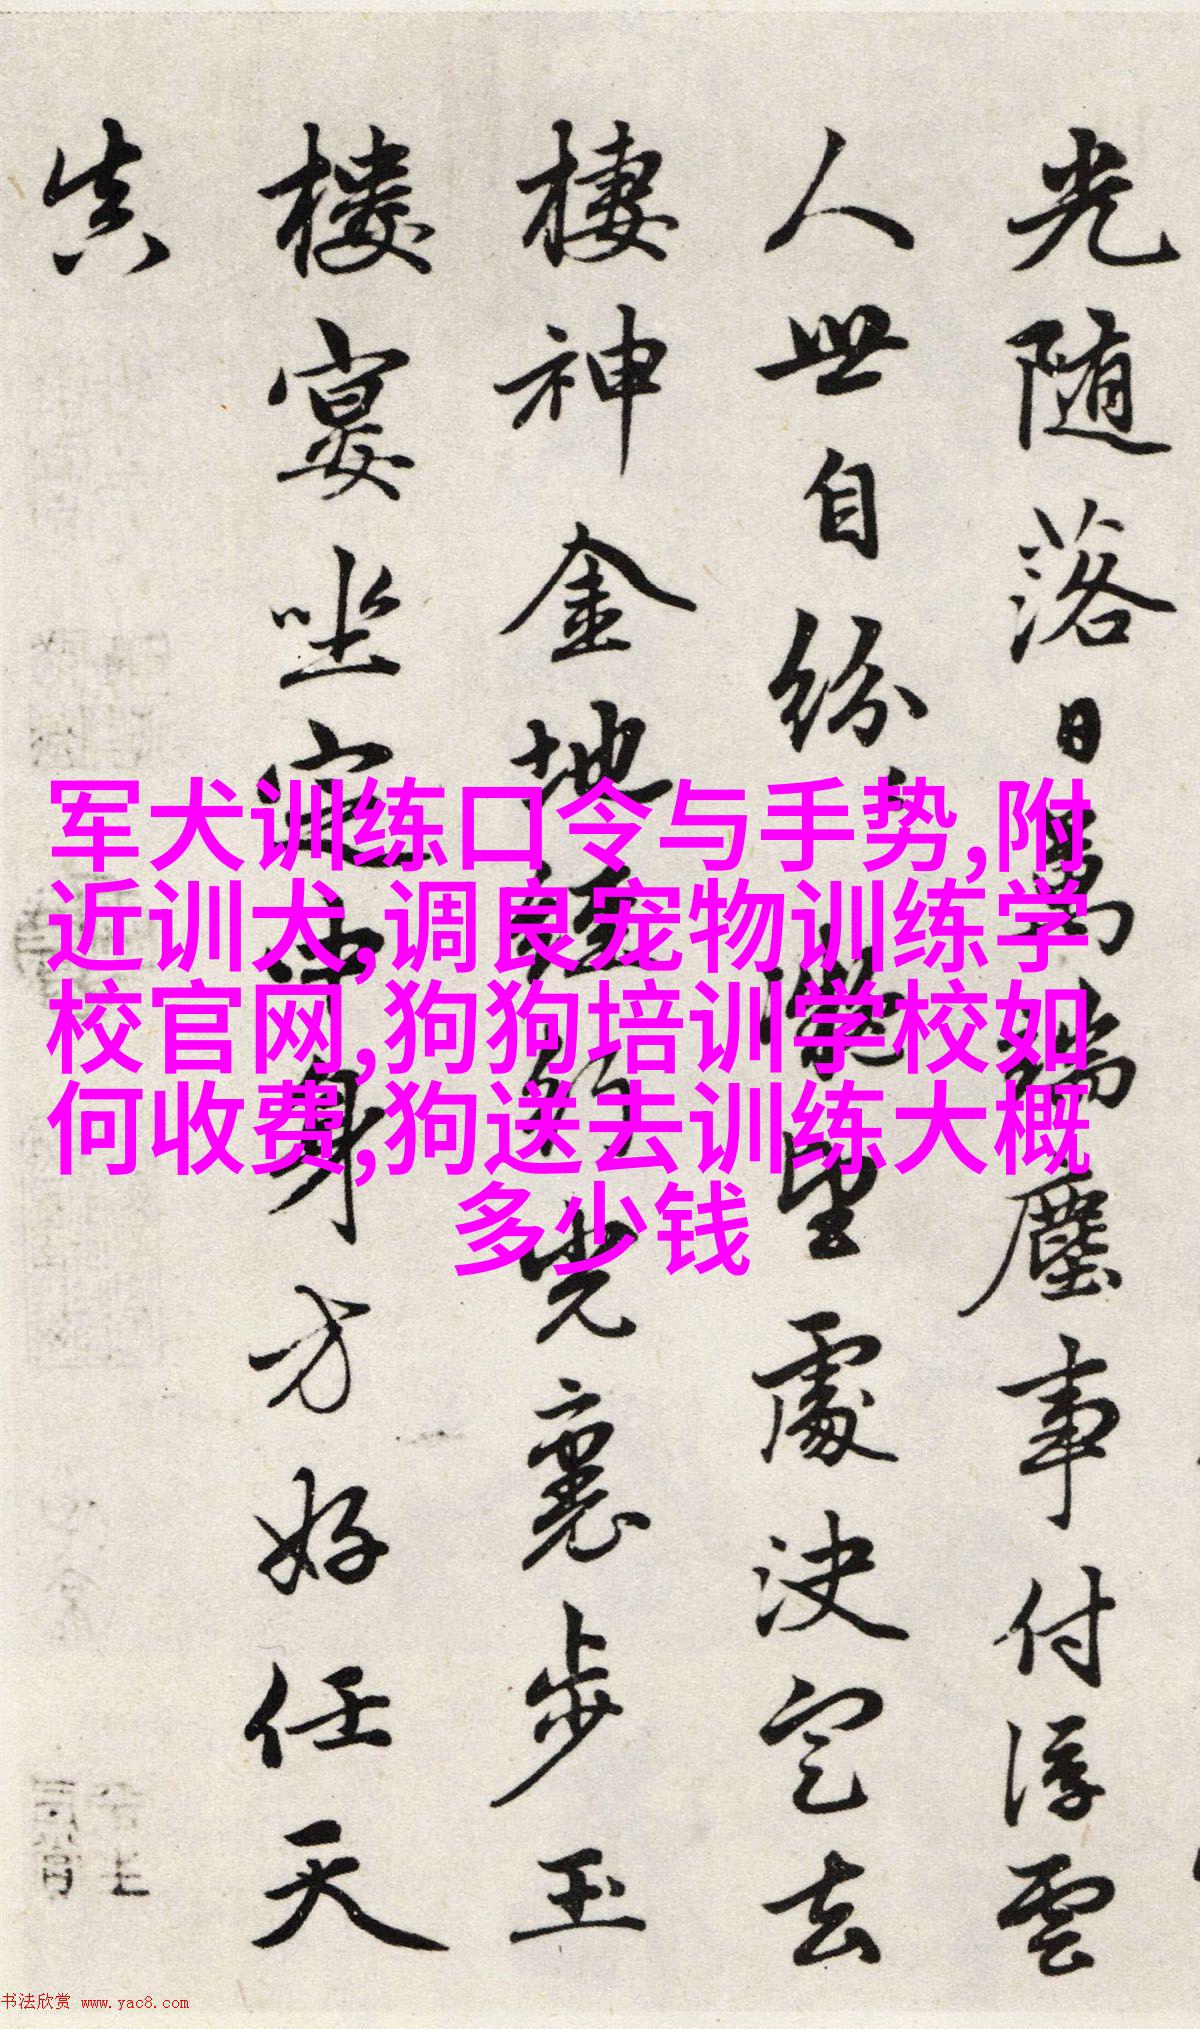 光随落日萬端塵事付浮雲
人世自紛望處決定去
棲神金地經行光裏步玉
樓宴坐定中身方好任天
真
军犬训练口令与手势,附
近训犬,调良宠物训练学
校官网,狗狗培训学校如
何收费,狗送去训练大概
多少钱
书法欣赏 www.yac8.com